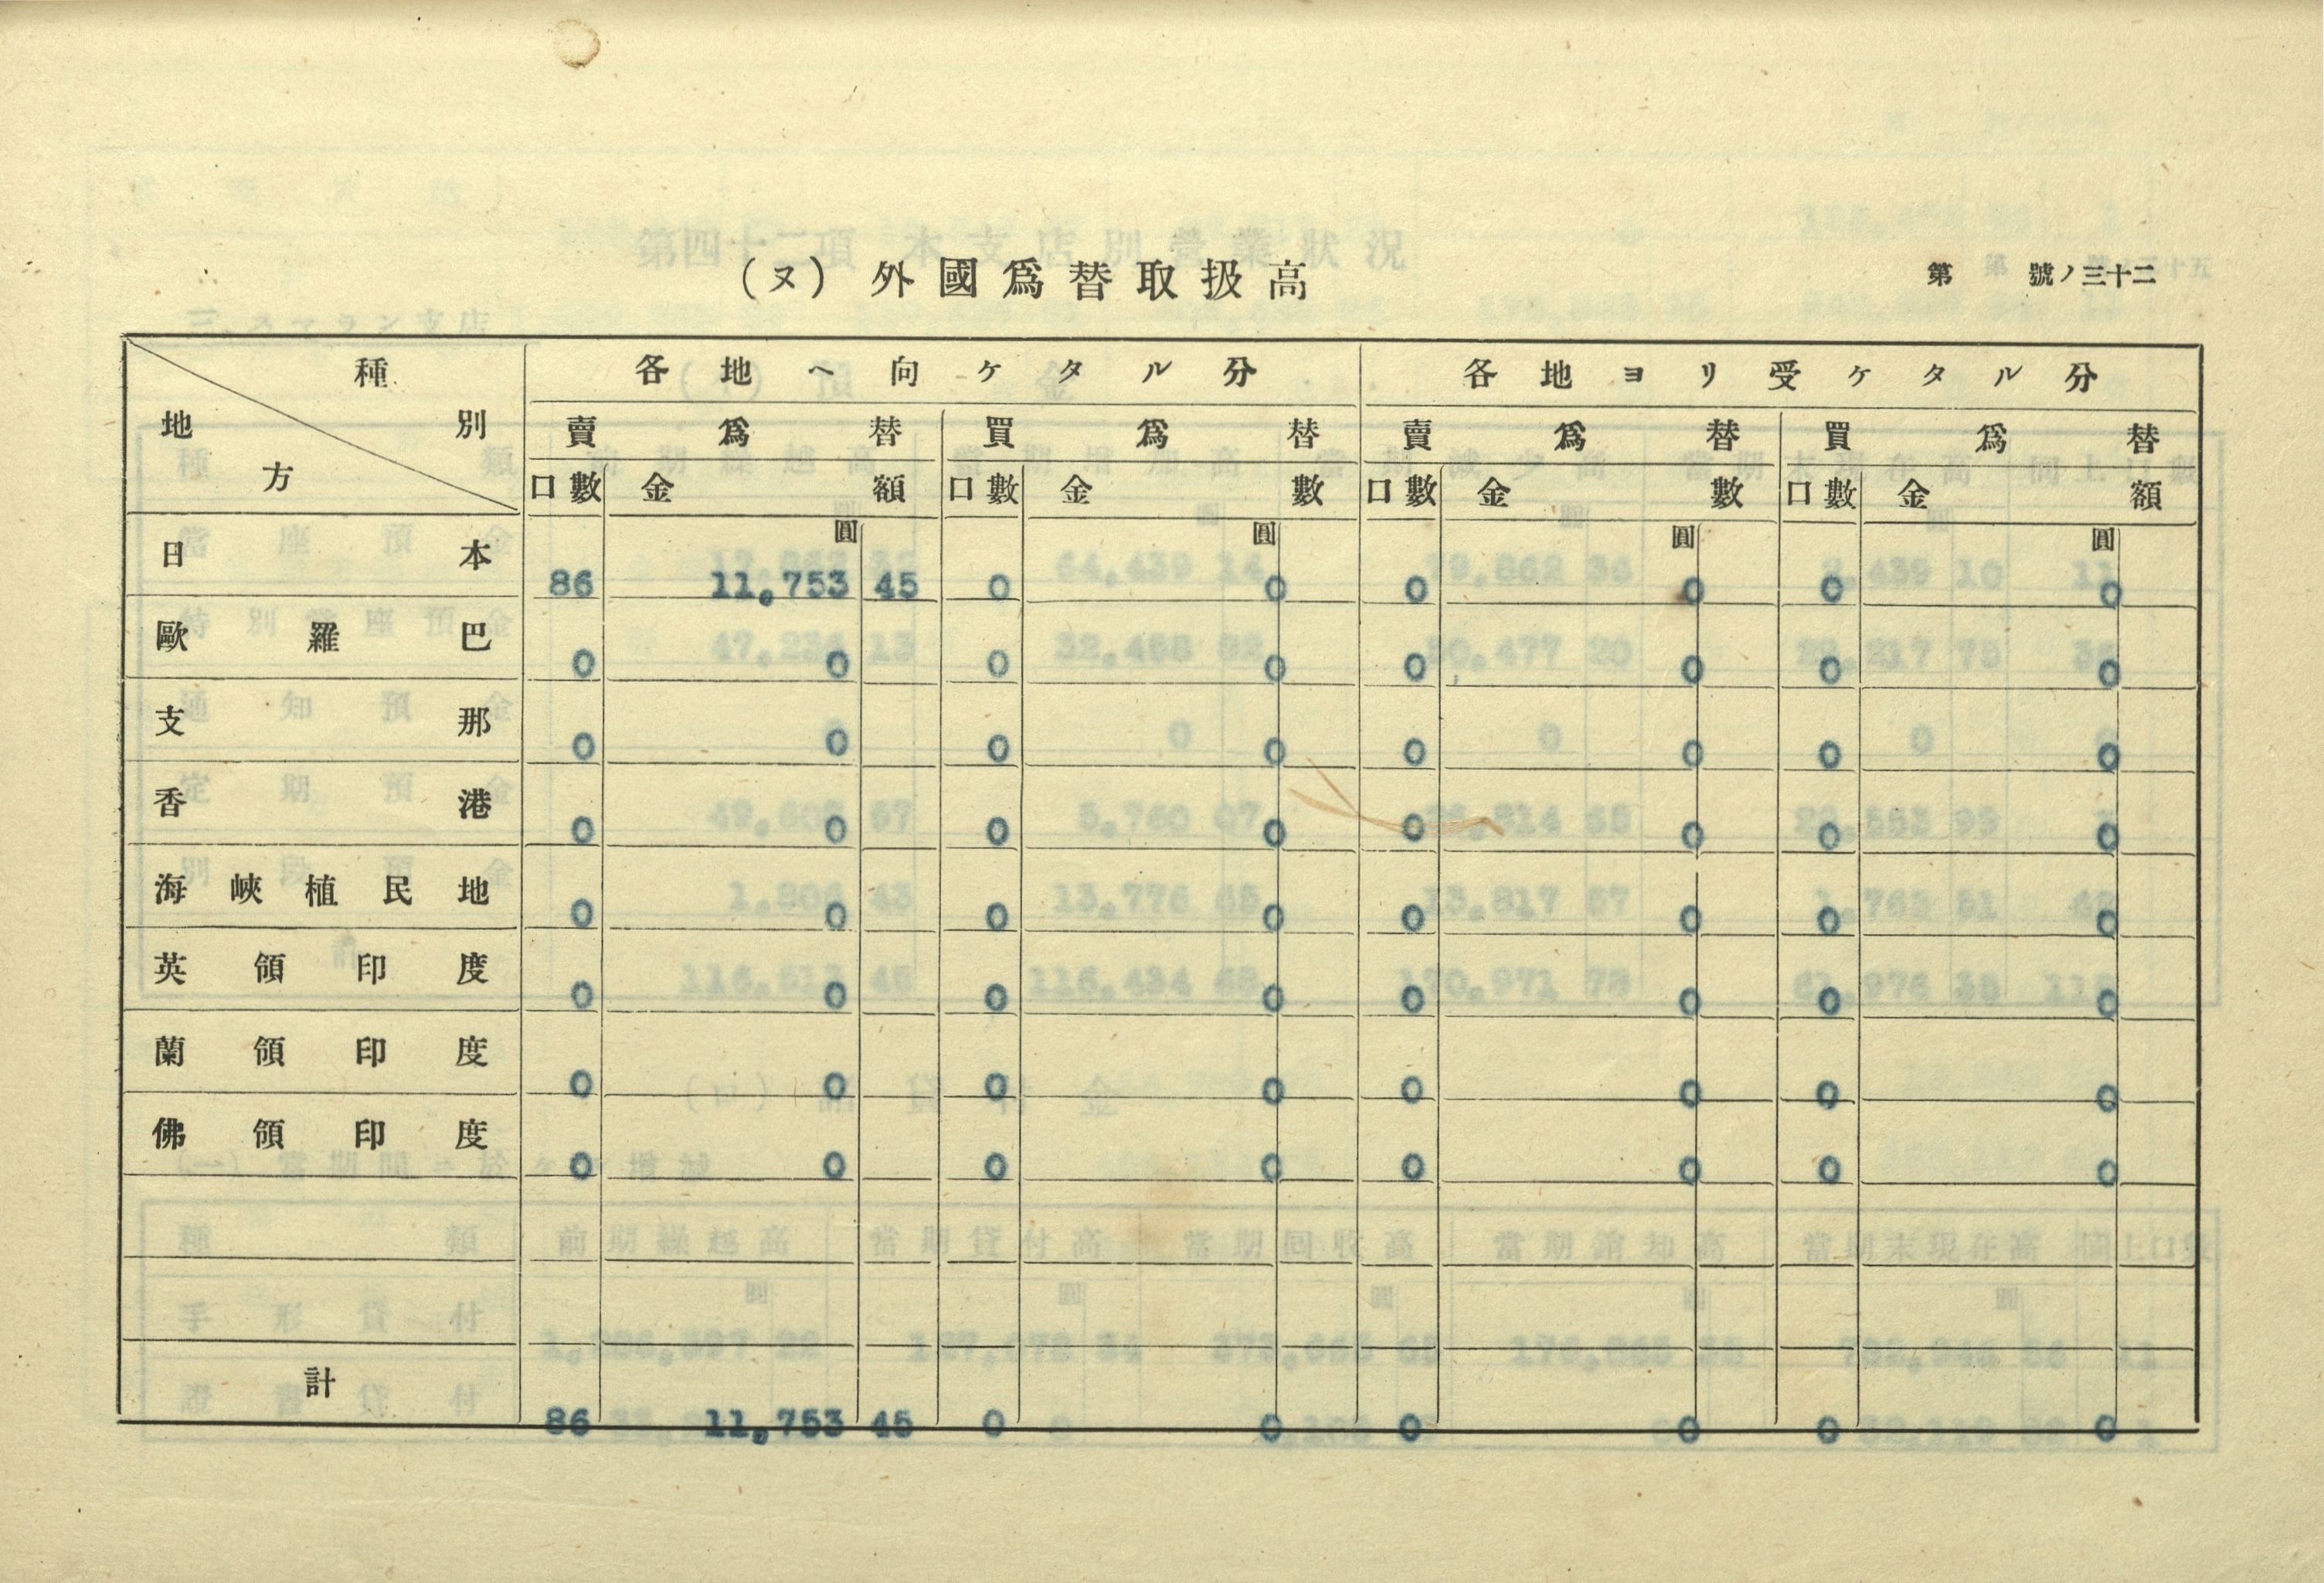 (ヌ) 外國爲替取扱高
第　號ノ三十二
種別 地方 各地ヘ向ケタル分 各地ヨリ受ケタル分
賣爲替 買爲替 賣爲替 買爲替
口數 金額 口數 金數 口數 金數 口數 金額
圓 圓 圓 圓
日本 86 11,753 45 0 0 0 0 0 0
歐羅巴 0 0 0 0 0 0 0 0
支那 0 0 0 0 0 0 0 0
香港 0 0 0 0 0 0 0 0
海峽植民地 0 0 0 0 0 0 0 0
英領印度 0 0 0 0 0 0 0 0
蘭領印度 0 0 0 0 0 0 0 0
佛領印度 0 0 0 0 0 0 0 0
計 86 11,753 45 0 0 0 0 0 0